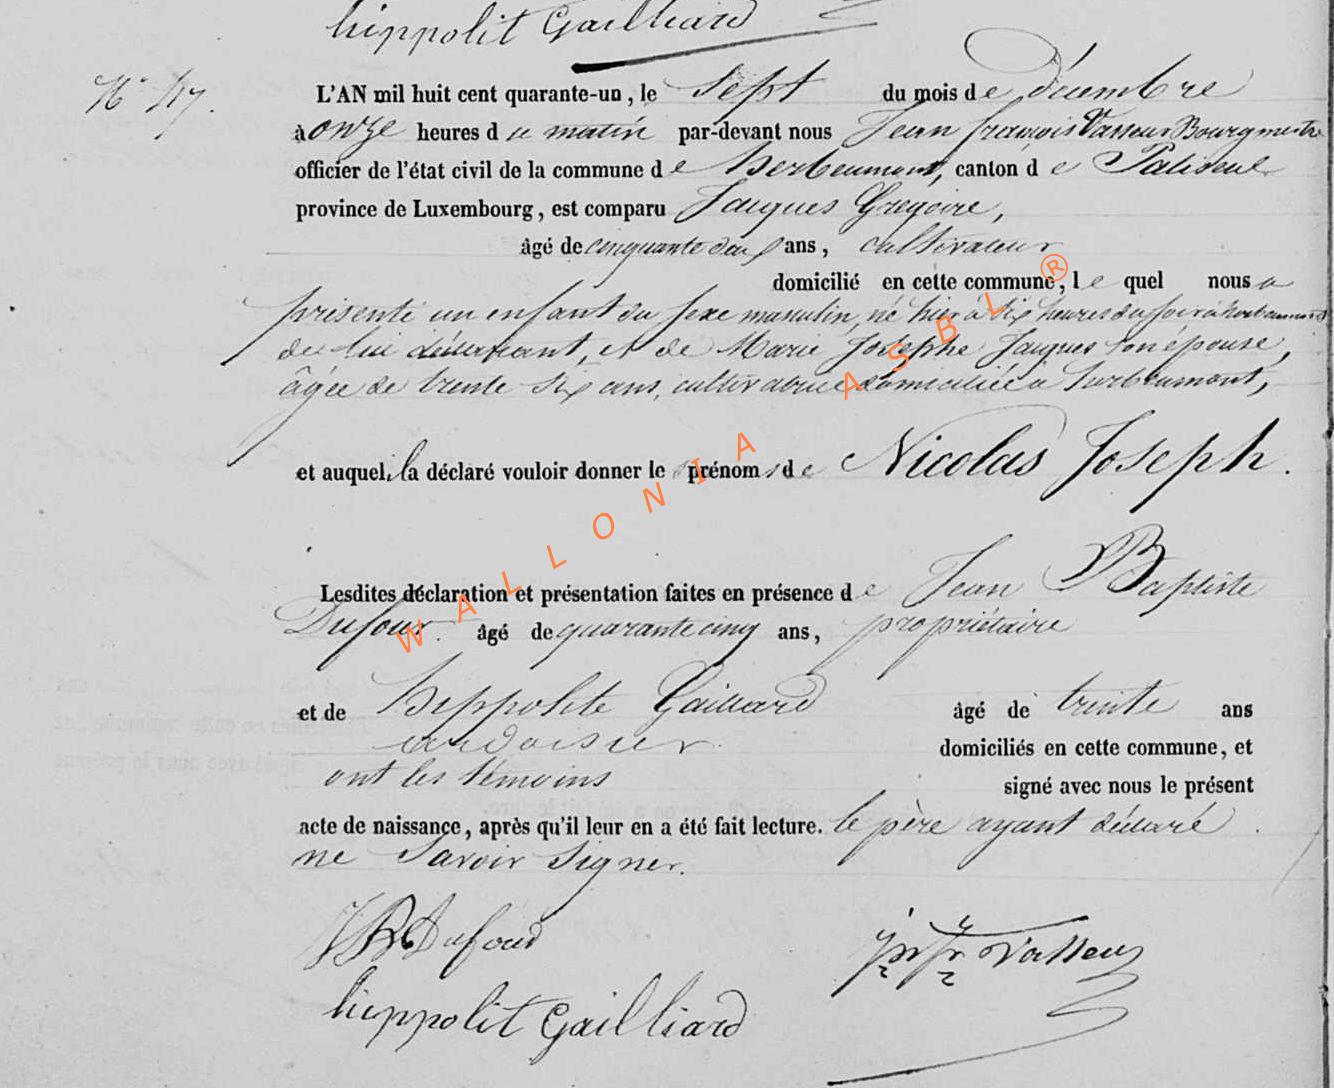 hippolit Gailliard
N° 47.
L'AN mil huit cent quarante-un, le Sept du mois de décembre
à onze heures du matin par-devant nous Jean françois Vasseur Bourgmestre
officier de l'état civil de la commune de herbeumont, canton de Paliseul
province de Luxembourg, est comparu Jacques Gregoire,
âgé de cinquante deux ans, cultivateur
domicilié en cette commune, le quel nous a
présenté un enfant du sexe masculin, né hier à dix heures du soir à herbeumont
de lui déclarant, et de Marie Josephe Jacques son épouse,
âgée de trente six ans, cultivatrice domiciliée à herbeumont,
et auquel il a déclaré vouloir donner les prénoms de Nicolas Joseph.
Lesdites déclaration et présentation faites en présence de Jean Baptiste
Dufour âgé de quarante cinq ans, propriétaire
et de hippolite Gailliard âgé de trente ans
ardoisier domiciliés en cette commune, et
ont les témoins signé avec nous le présent
acte de naissance, après qu'il leur en a été fait lecture. le père ayant déclaré
ne Savoir Signer.
JB Dufour
jn fr Vasseur
hippolit Gailliard
WALLONIA ASBL®